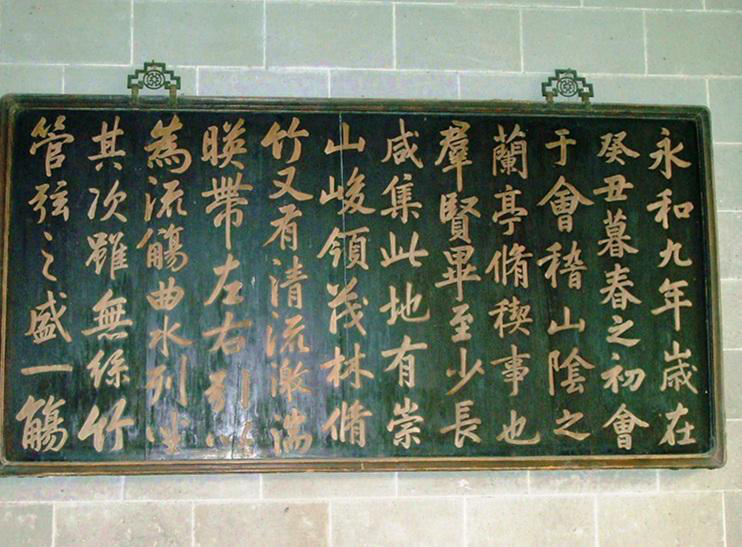 永和九年歲在
癸丑暮春之初會
于會稽山陰之
蘭亭脩稧事也
羣賢畢至少長
咸集此地有崇
山峻領茂林脩
竹又有清流激湍
暎帶左右引以
為流觴曲水列坐
其次雖無絲竹
管弦之盛一觴